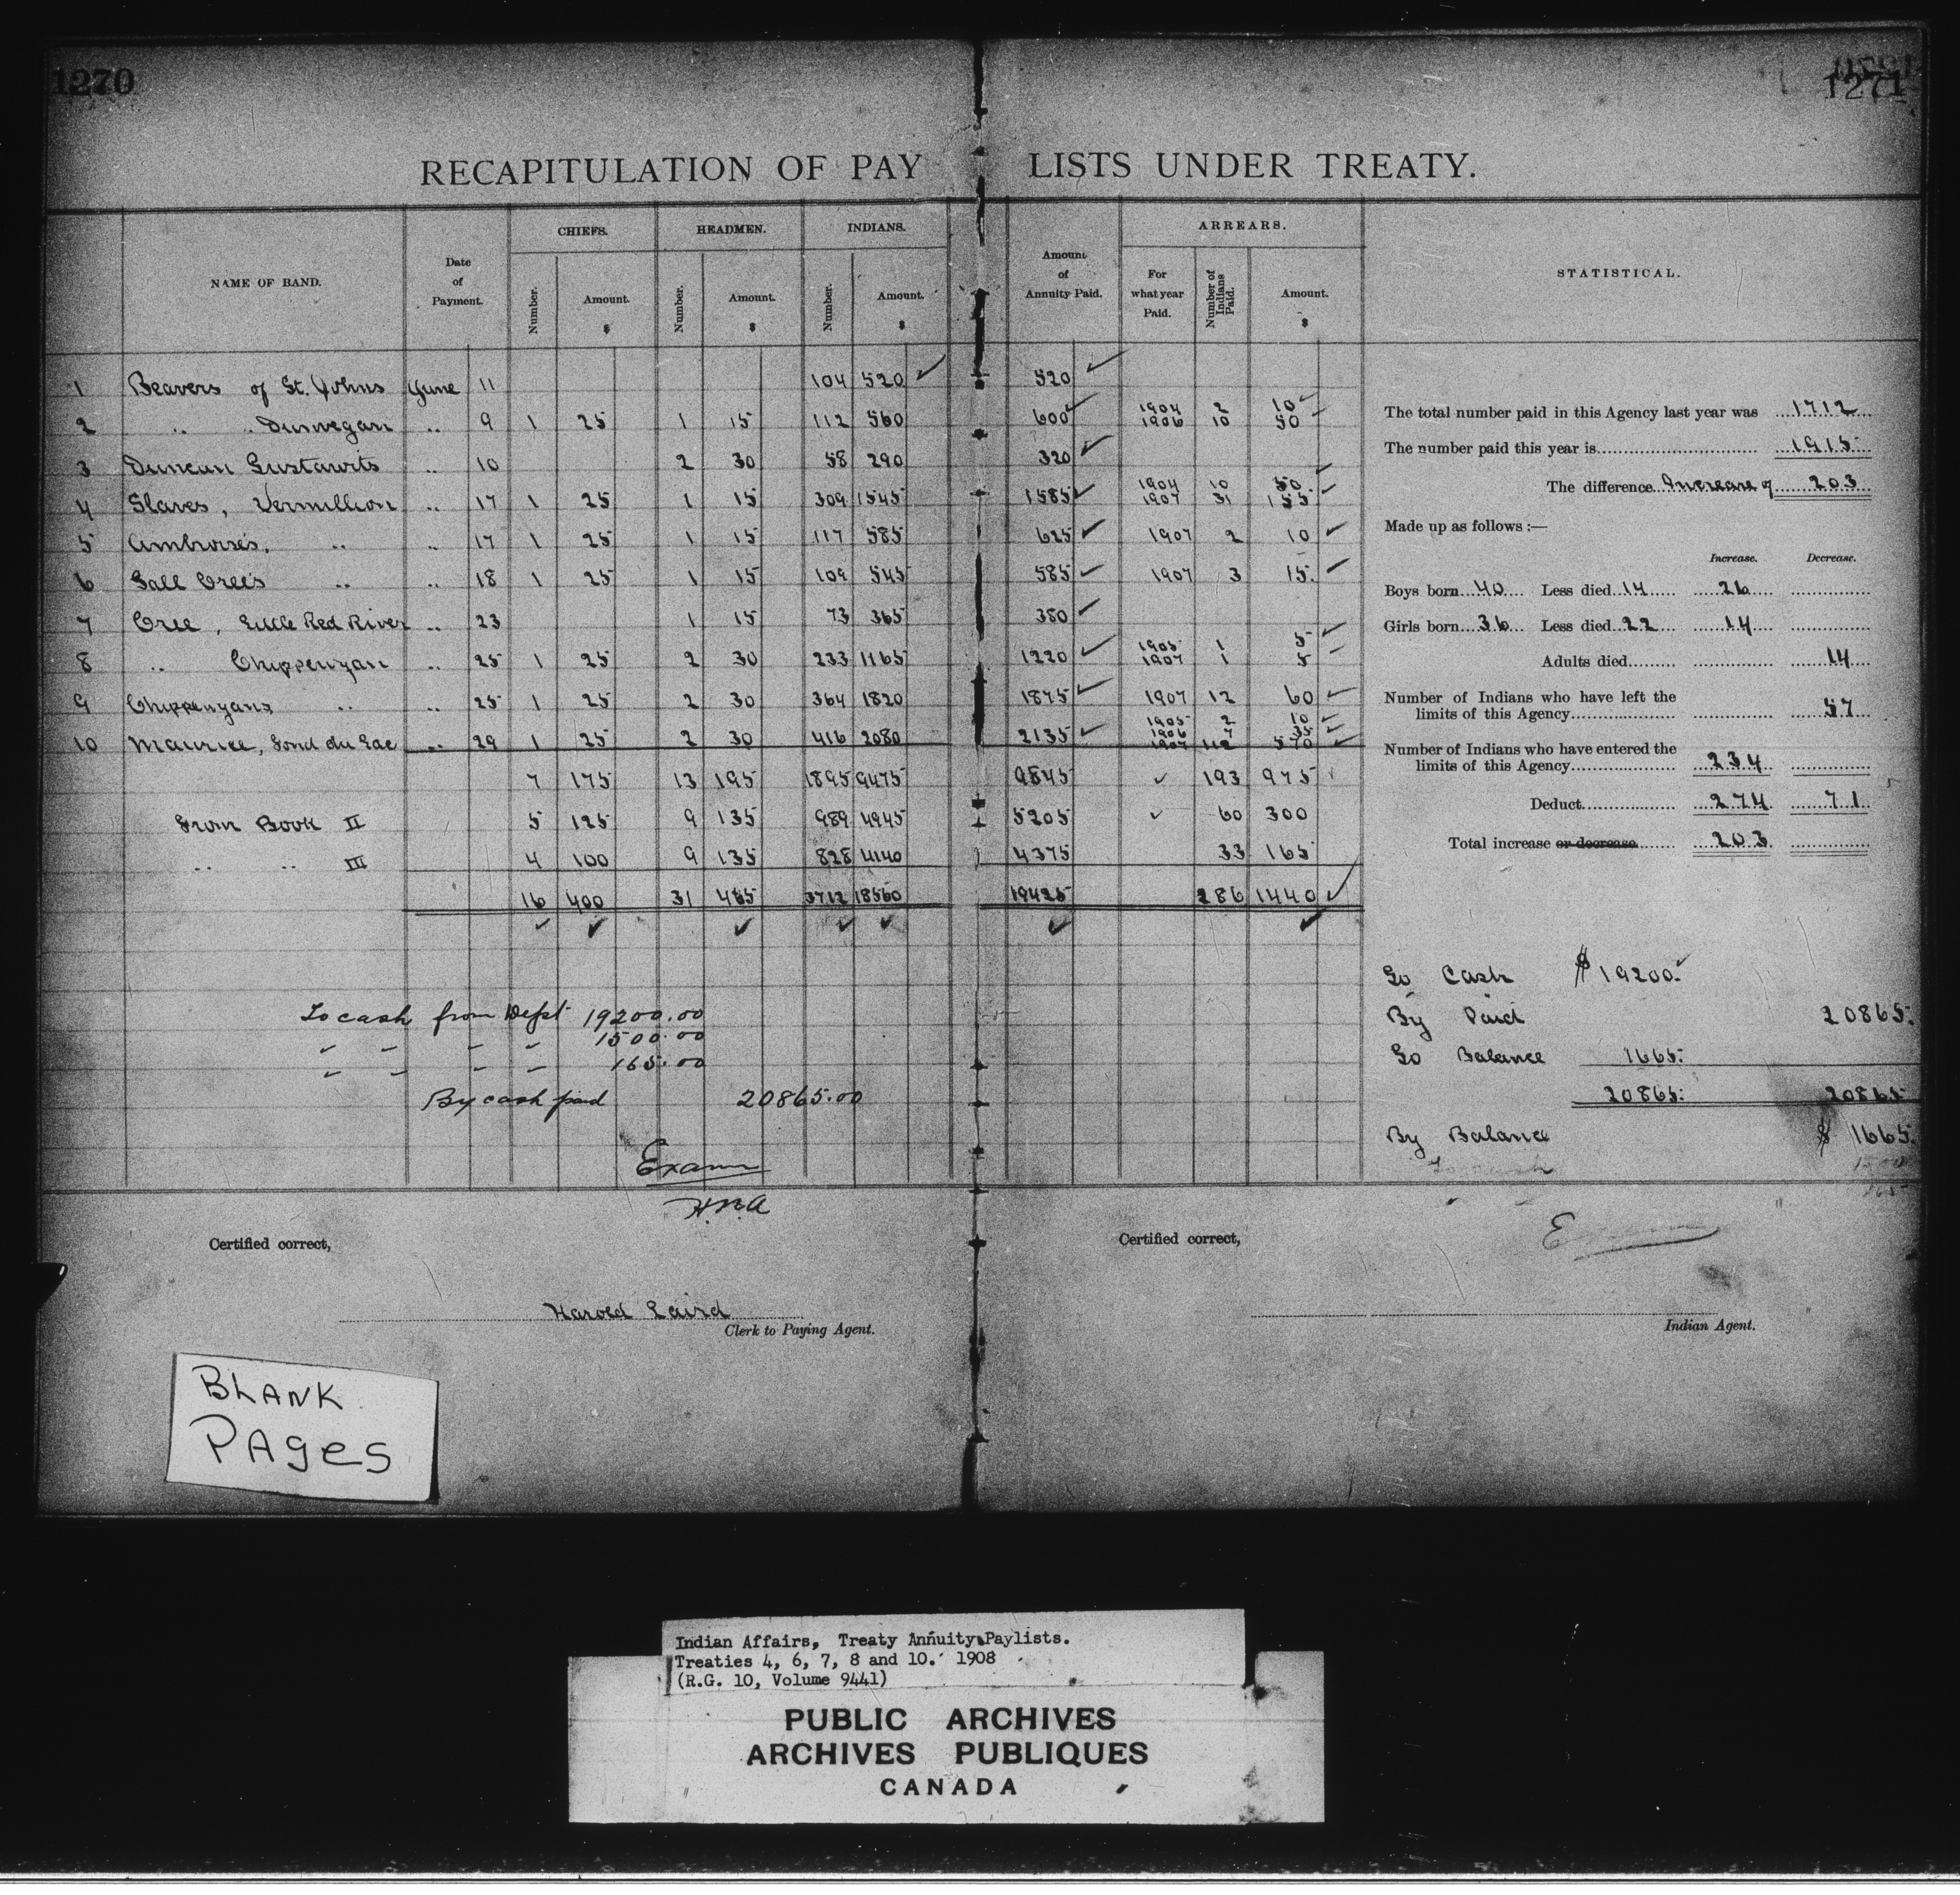 1270
1271
RECAPITULATION OF PAY LISTS UNDER TREATY.
NAME OF BAND. Date of Payment. CHIEFS. HEADMEN. INDIANS. Amount of Annuity Paid. ARREARS. STATISTICAL.
Number. Amount. $ Number. Amount. $ Number. Amount. $ For what year Paid. Number of Indians Paid. Amount. $
1 Beavers of St. Johns June 11 104 520 520
2 " " Dunvegan " 9 1 25 1 15 112 560 600 1904 2 10
1906 10 50
3 Duncan Tustawits " 10 2 30 58 290 320
4 Slaves, Vermillion " 17 1 25 1 15 309 1545 1585 1904 10 50
1907 31 155
5 Ambroise's, " " 17 1 25 1 15 117 585 625 1907 2 10
6 Tall Cree's " " 18 1 25 1 15 109 545 585 1907 3 15
7 Cree, Little Red River " 23 1 15 73 365 380
8 " Chippewyan " 25 1 25 2 30 233 1165 1220 1905 1 5
1907 1 5
9 Chippewyans " " 25 1 25 2 30 364 1820 1875 1907 12 60
10 Maurice, Fond du Lac " 29 1 25 2 30 416 2080 2135 1905 2 10
1906 7 35
1907 112 570
7 175 13 195 1895 9475 9845 193 975
From Book II 5 125 9 135 989 4945 5205 60 300
" " III 4 100 9 135 828 4140 4375 33 165
16 400 31 465 3712 18560 19425 286 1440
The total number paid in this Agency last year was 1712
The number paid this year is 1915
The difference Increase of 203
Made up as follows :—
Increase. Decrease.
Boys born 40 Less died 14 26
Girls born 36 Less died 22 14
Adults died 14
Number of Indians who have left the
limits of this Agency 57
Number of Indians who have entered the
limits of this Agency 234
Deduct 274 71
Total increase or decrease 203
To cash from Dept 19200.00
" " " " 1500.00
" " " " 165.00
By cash paid 20865.00
Exam
H.M.A
To Cash $ 19200.
By Paid 20865.
To Balance 1665.
20865. 20865
By Balance $ 1665.
Certified correct,
Harold Laird
Clerk to Paying Agent.
Certified correct,
Indian Agent.
BLANK
PAges
Indian Affairs, Treaty Annuity Paylists.
Treaties 4, 6, 7, 8 and 10. 1908
(R.G. 10, Volume 9441)
PUBLIC ARCHIVES
ARCHIVES PUBLIQUES
CANADA